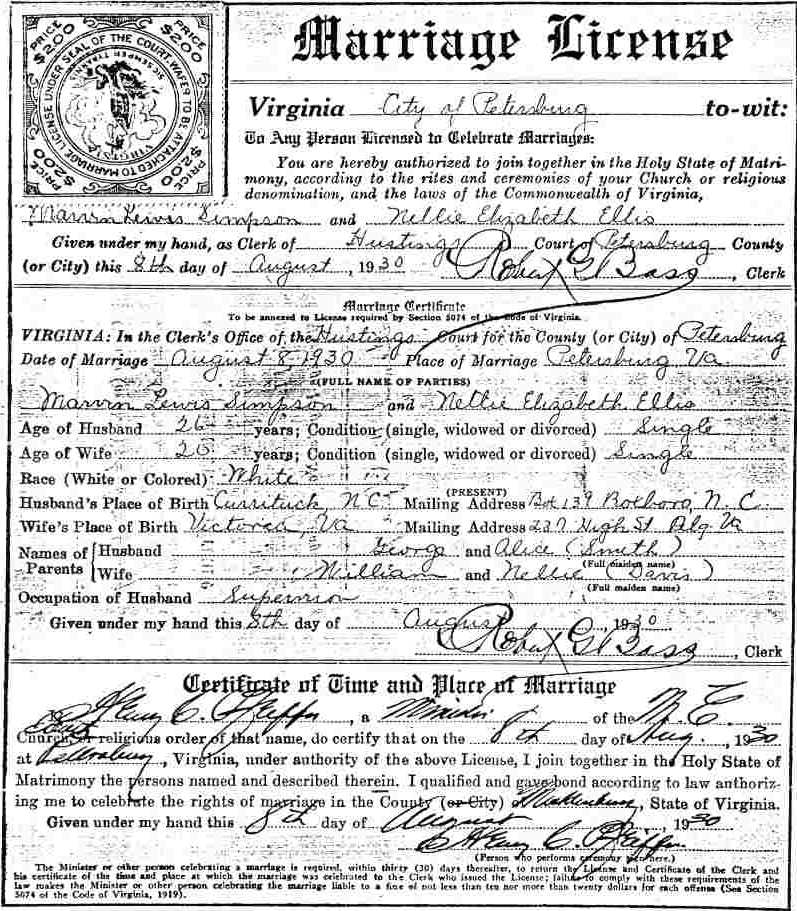 PRICE $2.00
PRICE $2.00
PRICE $2.00
PRICE $2.00
MARRIAGE LICENSE UNDER SEAL OF THE COURT WAFER TO BE ATTACHED TO
SIC SEMPER TYRANNIS
VIRGINIA
Marriage License
Virginia City of Petersburg to-wit:
To Any Person Licensed to Celebrate Marriages:
You are hereby authorized to join together in the Holy State of Matri-
mony, according to the rites and ceremonies of your Church or religious
denomination, and the laws of the Commonwealth of Virginia,
Marvin Lewis Simpson and Nellie Elizabeth Ellis
Given under my hand, as Clerk of Hustings Court of Petersburg County
(or City) this 8th day of August, 1930 Robert G Bass, Clerk
Marriage Certificate
To be annexed to License required by Section 5074 of the Code of Virginia.
VIRGINIA: In the Clerk's Office of the Hustings Court for the County (or City) of Petersburg
Date of Marriage August 8, 1930 Place of Marriage Petersburg Va
(FULL NAME OF PARTIES)
Marvin Lewis Simpson and Nellie Elizabeth Ellis
Age of Husband 26 years; Condition (single, widowed or divorced) Single
Age of Wife years; Condition (single, widowed or divorced) Single
Race (White or Colored) White
Husband's Place of Birth Currituck, N C (PRESENT) Mailing Address Box 139 Roxboro, N. C.
Wife's Place of Birth Victoria, Va Mailing Address 237 High St Va
Names of Parents Husband George and Alice (Smith)
(Full maiden name)
Wife William and Nellie (Davis)
(Full maiden name)
Occupation of Husband Supervisor
Given under my hand this 8th day of August 1930
Robert G Bass, Clerk
Certificate of Time and Place of Marriage
I, Henry C. Pfeiffer, a Minister of the M. E.
Church, or religious order of that name, do certify that on the 8th day of Aug., 1930
at Petersburg, Virginia, under authority of the above License, I join together in the Holy State of
Matrimony the persons named and described therein. I qualified and gave bond according to law authoriz-
ing me to celebrate the rights of marriage in the County (or City) Mecklenburg, State of Virginia.
Given under my hand this 8th day of August 1930
Henry C Pfeiffer
(Person who performs ceremony sign here.)
The Minister or other person celebrating a marriage is required, within thirty (30) days thereafter, to return the License and Certificate of the Clerk and
his certificate of the time and place at which the marriage was celebrated to the Clerk who issued the License; failure to comply with these requirements of the
law makes the Minister or other person celebrating the marriage liable to a fine of not less than ten nor more than twenty dollars for each offense (See Section
5074 of the Code of Virginia, 1919).